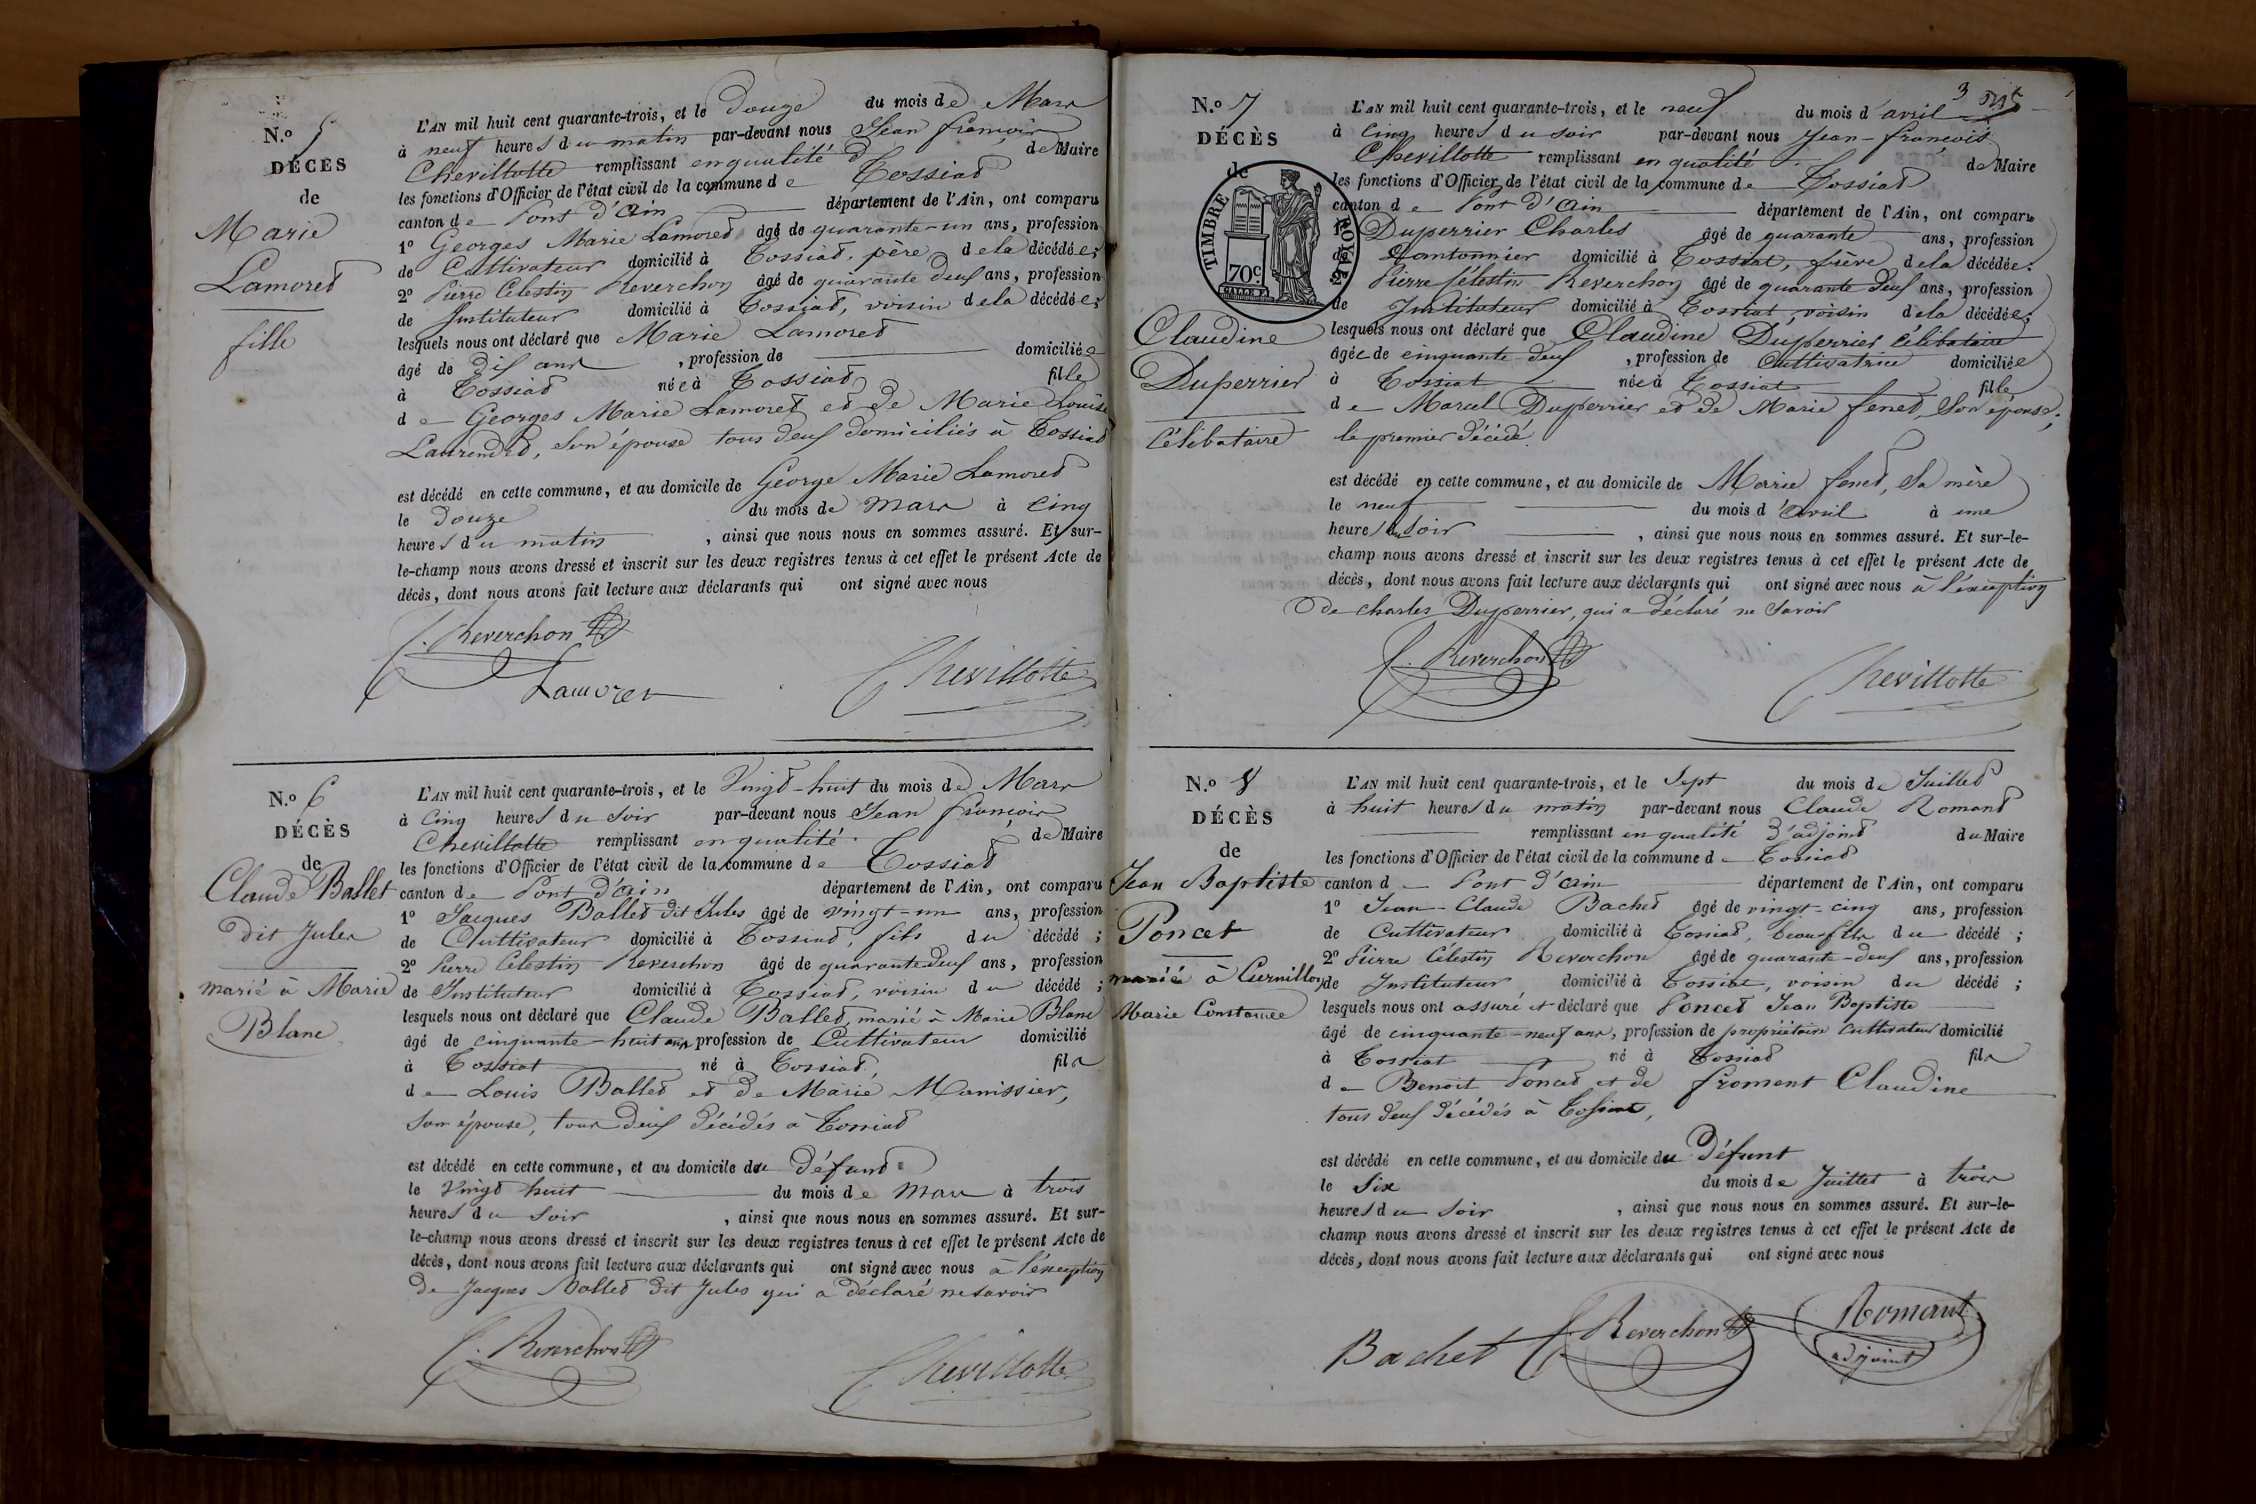 N.º 5
DÉCÈS
de
Marie
Lamoret
fille
L'AN mil huit cent quarante-trois, et le douze du mois de Mars
à neuf heures du matin par-devant nous Jean françois
Chevillotte remplissant en qualité de Maire
les fonctions d'Officier de l'état civil de la commune de Tossiat
canton de Pont d'Ain département de l'Ain, ont comparu
1º Georges Marie Lamoret âgé de quarante-un ans, profession
de Cultivateur domicilié à Tossiat, père de la décédée;
2º Pierre Célestin Reverchon âgé de quarante deux ans, profession
de Instituteur domicilié à Tossiat, voisin de la décédée;
lesquels nous ont déclaré que Marie Lamoret
âgé de dix ans, profession de domiciliée
à Tossiat née à Tossiat, fille
de Georges Marie Lamoret et de Marie Louise
Laurendet, son épouse tous deux domiciliés à Tossiat
est décédé en cette commune, et au domicile de George Marie Lamoret
le Douze du mois de Mars à Cinq
heures du matin, ainsi que nous nous en sommes assuré. Et sur-
le-champ nous avons dressé et inscrit sur les deux registres tenus à cet effet le présent Acte de
décès, dont nous avons fait lecture aux déclarants qui ont signé avec nous
C. Reverchon
Lamoret
Chevillotte
N.º 6
DÉCÈS
de
Claude Ballet
dit Jules
marié à Marie
Blanc
L'AN mil huit cent quarante-trois, et le Vingt-huit du mois de Mars
à Cinq heures du soir par-devant nous Jean françois
Chevillotte remplissant en qualité de Maire
les fonctions d'Officier de l'état civil de la commune de Tossiat
canton de Pont d'Ain département de l'Ain, ont comparu
1º Jacques Ballet dit Jules âgé de vingt-un ans, profession
de Cultivateur domicilié à Tossiat, fils du décédé;
2º Pierre Célestin Reverchon âgé de quarante deux ans, profession
de Instituteur domicilié à Tossiat, voisin du décédé;
lesquels nous ont déclaré que Claude Ballet, marié à Marie Blanc
âgé de cinquante-huit ans, profession de Cultivateur domicilié
à Tossiat né à Tossiat, fils
de Louis Ballet et de Marie Manissier,
son épouse, tous deux décédés à Tossiat
est décédé en cette commune, et au domicile du Défunt
le Vingt huit du mois de Mars à trois
heures du soir, ainsi que nous nous en sommes assuré. Et sur-
le-champ nous avons dressé et inscrit sur les deux registres tenus à cet effet le présent Acte de
décès, dont nous avons fait lecture aux déclarants qui ont signé avec nous à l'exception
de Jacques Ballet dit Jules qui a déclaré ne savoir
C. Reverchon
Chevillotte
3
N.º 7
DÉCÈS
de
TIMBRE ROYAL
70c
Claudine
Duperrier
célibataire
L'AN mil huit cent quarante-trois, et le neuf du mois d'avril
à Cinq heures du soir par-devant nous Jean-françois
Chevillotte remplissant en qualité de Maire
les fonctions d'Officier de l'état civil de la commune de Tossiat
canton de Pont d'Ain département de l'Ain, ont comparu
1º Duperrier Charles âgé de quarante ans, profession
de Cantonnier domicilié à Tossiat, frère de la décédée;
Pierre Célestin Reverchon âgé de quarante deux ans, profession
de Instituteur domicilié à Tossiat, voisin de la décédée;
lesquels nous ont déclaré que Claudine Duperrier célibataire
âgée de cinquante-deux, profession de Cultivatrice domiciliée
à Tossiat née à Tossiat fille
de Marcel Duperrier et de Marie fenet, son épouse,
le premier décédé.
est décédé en cette commune, et au domicile de Marie fenet, sa mère
le neuf du mois d'avril à une
heure du soir, ainsi que nous nous en sommes assuré. Et sur-le-
champ nous avons dressé et inscrit sur les deux registres tenus à cet effet le présent Acte de
décès, dont nous avons fait lecture aux déclarants qui ont signé avec nous à l'exception
de charles Duperrier, qui a déclaré ne savoir
C. Reverchon
Chevillotte
N.º 8
DÉCÈS
de
Jean Baptiste
Poncet
marié à Curnillon
Marie Constance
L'AN mil huit cent quarante-trois, et le Sept du mois de Juillet
à huit heures du matin par-devant nous Claude Romand
remplissant en qualité d'adjoint du Maire
les fonctions d'Officier de l'état civil de la commune de Tossiat
canton de Pont d'Ain département de l'Ain, ont comparu
1º Jean-Claude Bachet âgé de vingt-cinq ans, profession
de Cultivateur domicilié à Tossiat, beau-fils du décédé;
2º Pierre Célestin Reverchon âgé de quarante-deux ans, profession
de Instituteur domicilié à Tossiat, voisin du décédé;
lesquels nous ont assuré et déclaré que Poncet Jean Baptiste
âgé de cinquante-neuf ans, profession de propriétaire Cultivateur domicilié
à Tossiat né à Tossiat fils
de Benoit Poncet et de froment Claudine
tous deux décédés à Tossiat,
est décédé en cette commune, et au domicile du Défunt
le Six du mois de Juillet à trois
heures du soir, ainsi que nous nous en sommes assuré. Et sur-le-
champ nous avons dressé et inscrit sur les deux registres tenus à cet effet le présent Acte de
décès, dont nous avons fait lecture aux déclarants qui ont signé avec nous
Bachet C. Reverchon Romant
adjoint